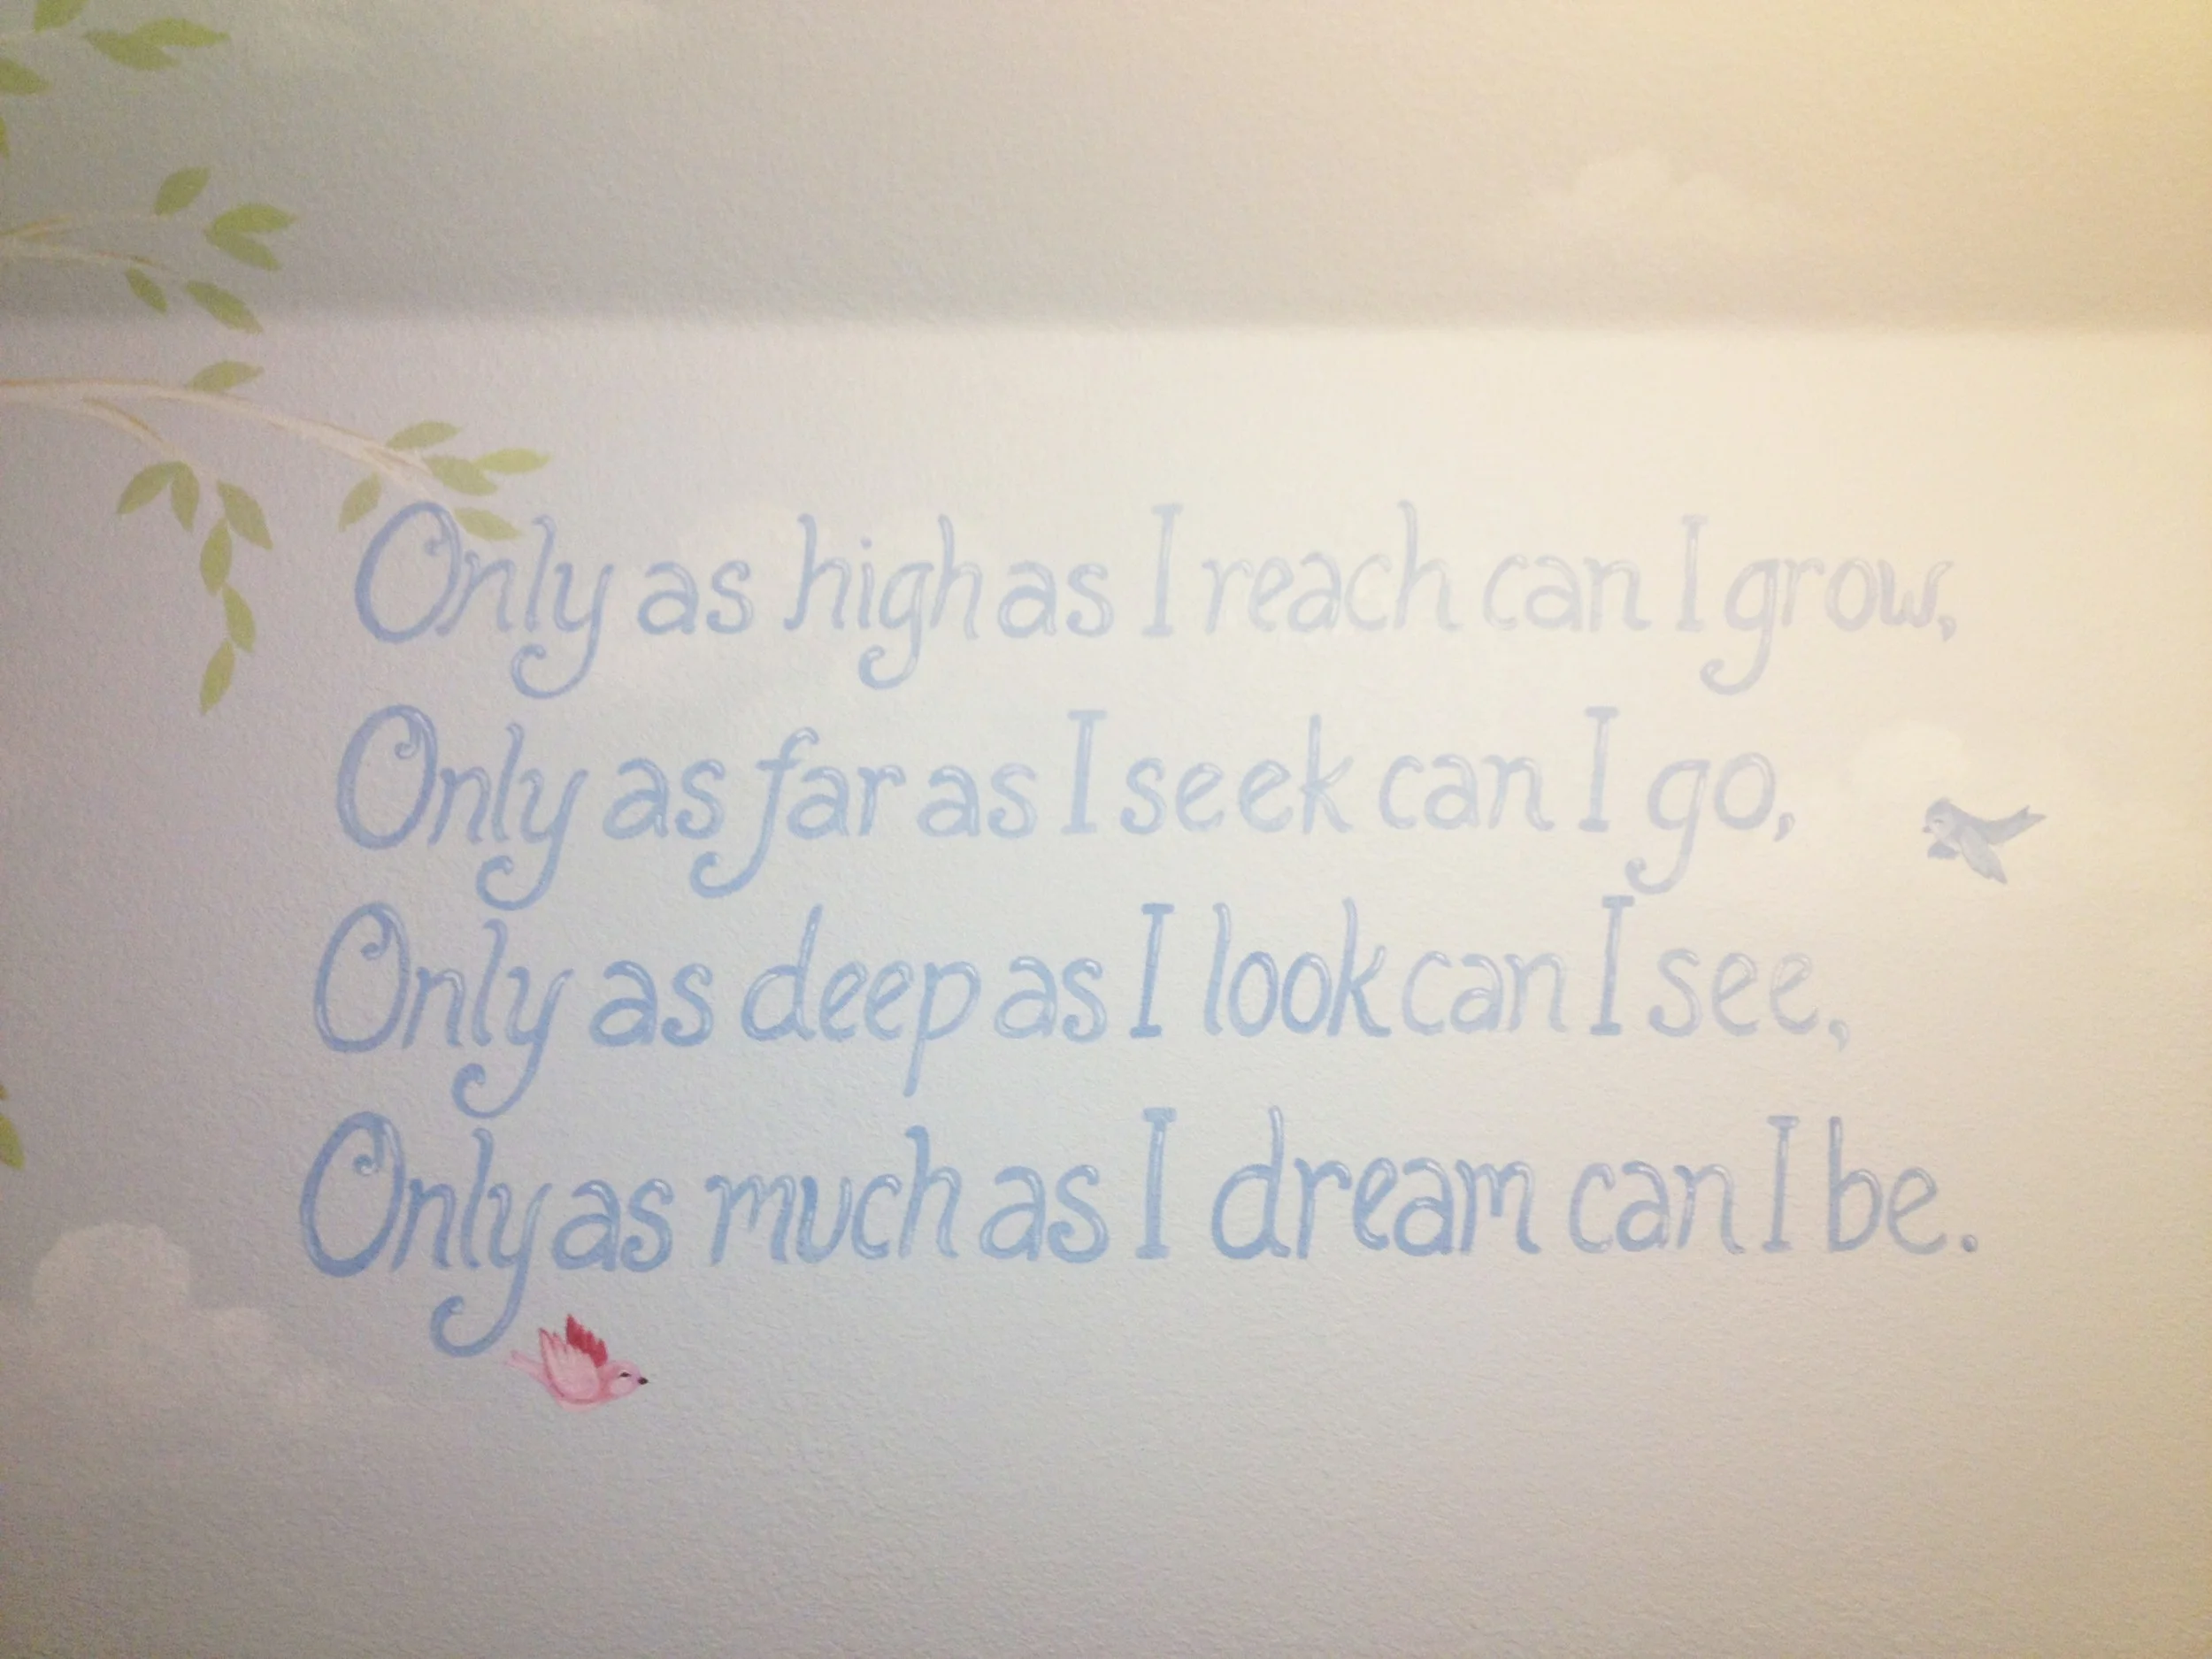 Only as high as I reach can I grow,
Only as far as I seek can I go,
Only as deep as I look can I see,
Only as much as I dream can I be.